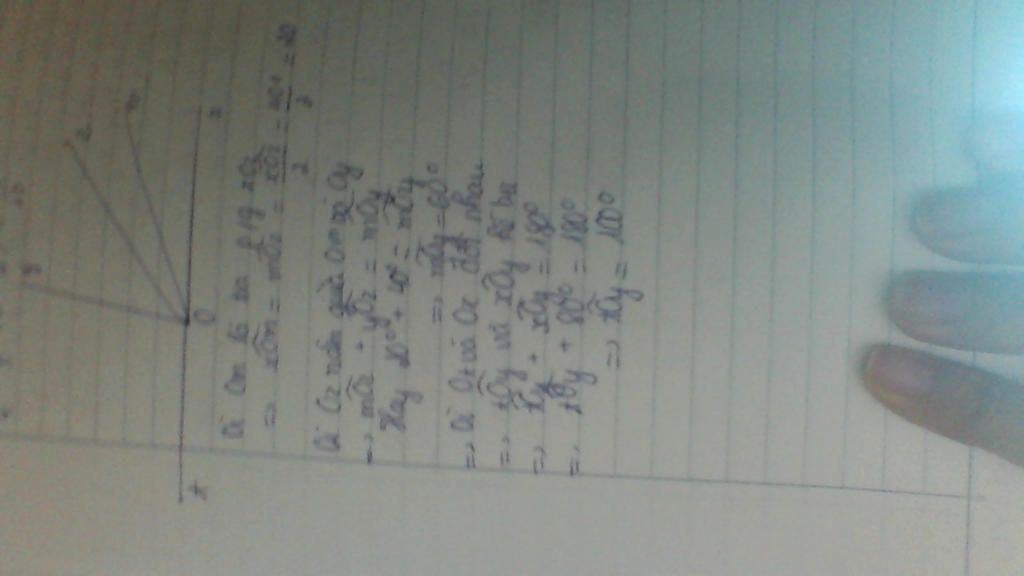 y
z
m
x
O
t
Vì Om là tia p/g xOz
=> xOm = mOz = xOz/2 = 40°/2 = 20
Vì Oz nằm giữa Om và Oy
=> mOz + yOz = mOy
Hay 20° + 40° = mOy
=> mOy = 60°
=> Vì Ot và Ox đối nhau
=> tOy và xOy kề bù
=> tOy + xOy = 180°
=> tOy + 80° = 180°
=> tOy = 100°